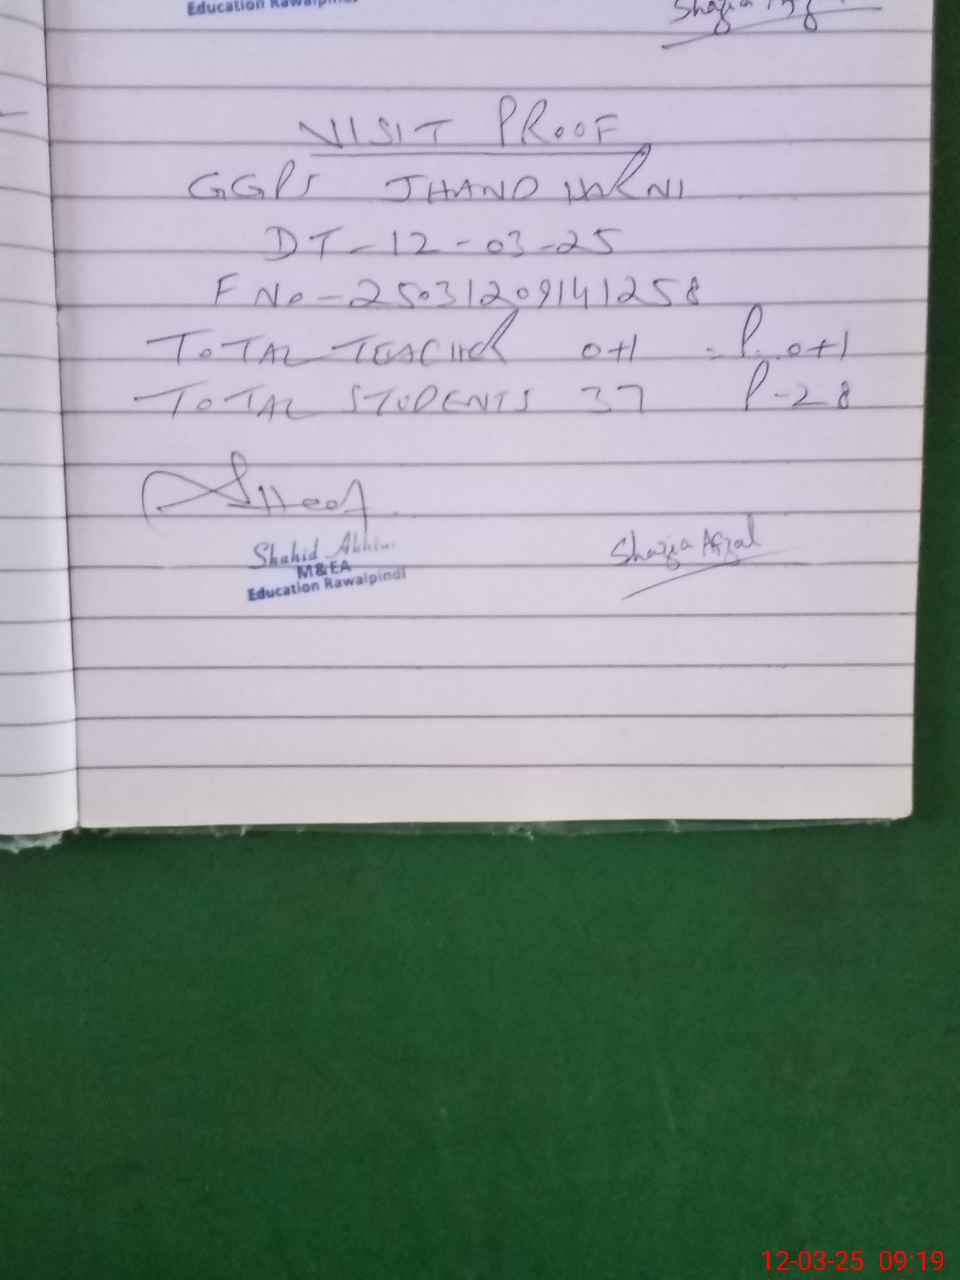 Education Rawalpindi
Shazia Afzal
VISIT PROOF
GGPS JHAND
DT - 12 - 03 - 25
F No - 25031209141258
TOTAL TEACHER 0+1 - P. 0+1
TOTAL STUDENTS 37 P - 28
Shahid
M&EA
Education Rawalpindi
Shazia Afzal
12-03-25 09:19